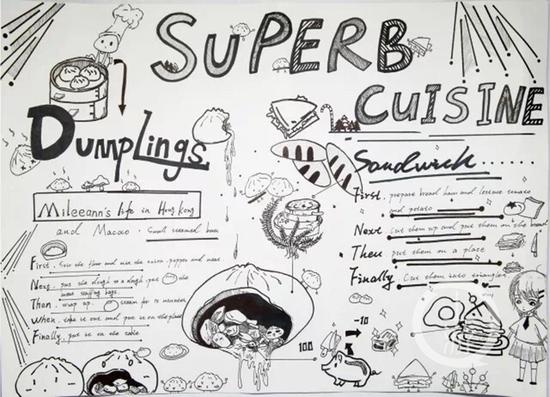 SUPERB
CUISINE
DUMPLings
Mileeann's life in Hong Kong
and Macao. Small steamed buns
First. the flour and mix the onion, pepper and meat
Next. put the dough to a dough, put the
Then. wrap up. steam for 10 minutes
When. take it one and put it on the plate
Finally. put it on the table
Sandwich......
First. prepare bread ham and lettuce tomato
and potato
Next. cut them up and put them on the bread
Then put them on a place
Finally cut them into triangles
-10
100